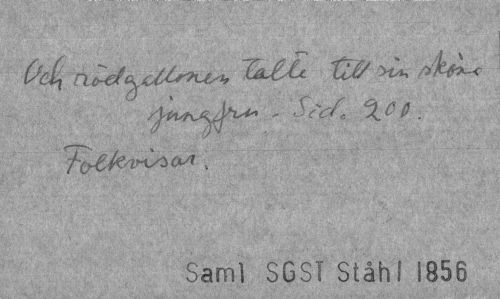 Och rödgallonen talte till sin sköna
jungfru. Sid. 200.
Folkvisor.
Saml SGST Ståhl 1856